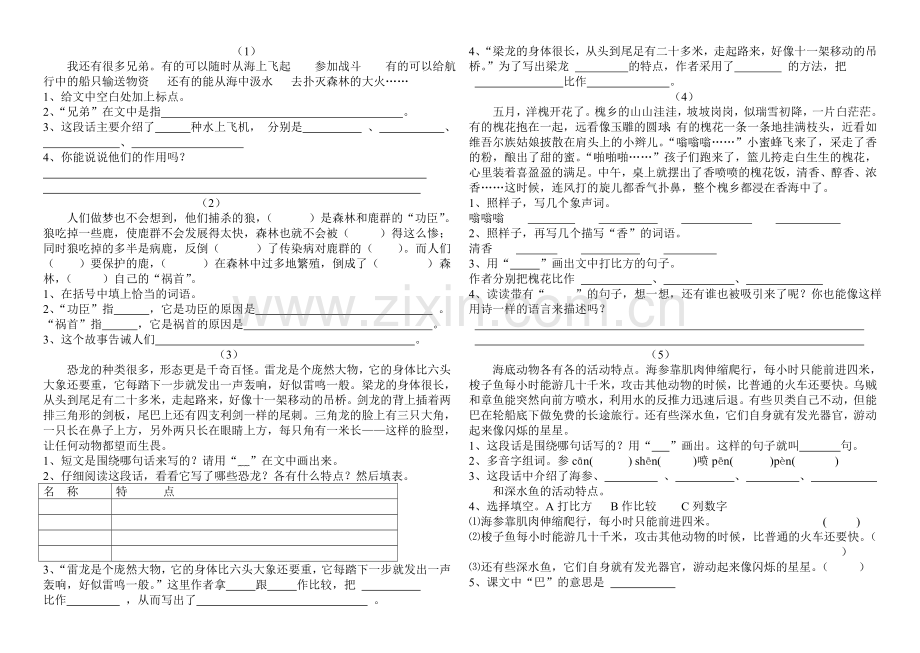 （1）
我还有很多兄弟。有的可以随时从海上飞起 参加战斗 有的可以给航
行中的船只输送物资 还有的能从海中汲水 去扑灭森林的大火……
1、给文中空白处加上标点。
2、“兄弟”在文中是指____________________。
3、这段话主要介绍了______种水上飞机，分别是__________ 、__________、
____________、____________________
4、你能说说他们的作用吗？
（2）
人们做梦也不会想到，他们捕杀的狼，（ ）是森林和鹿群的“功臣”。
狼吃掉一些鹿，使鹿群不会发展得太快，森林也就不会被（ ）得这么惨；
同时狼吃掉的多半是病鹿，反倒（ ）了传染病对鹿群的（ ）。而人们
（ ）要保护的鹿，（ ）在森林中过多地繁殖，倒成了（ ）森
林，（ ）自己的“祸首”。
1、在括号中填上恰当的词语。
2、“功臣”指______，它是功臣的原因是____________________ 。
“祸首”指______，它是祸首的原因是____________________。
3、这个故事告诫人们______________________________。
（3）
恐龙的种类很多，形态更是千奇百怪。雷龙是个庞然大物，它的身体比六头
大象还要重，它每踏下一步就发出一声轰响，好似雷鸣一般。梁龙的身体很长，
从头到尾足有二十多米，走起路来，好像十一架移动的吊桥。剑龙的背上插着两
排三角形的剑板，尾巴上还有四支利剑一样的尾刺。三角龙的脸上有三只大角，
一只长在鼻子上方，另外两只长在眼睛上方，每只角有一米长——这样的脸型，
让任何动物都望而生畏。
1、短文是围绕哪句话来写的？请用“__”在文中画出来。
2、仔细阅读这段话，看看它写了哪些恐龙？各有什么特点？然后填表。
名 称 特 点
3、“雷龙是个庞然大物，它的身体比六头大象还要重，它每踏下一步就发出一声
轰响，好似雷鸣一般。”这里作者拿____跟____作比较，把 __________
比作__________ ，从而写出了____________________ 。
4、“梁龙的身体很长，从头到尾足有二十多米，走起路来，好像十一架移动的吊
桥。”为了写出梁龙 ________的特点，作者采用了________ 的方法，把
____________比作____________。
（4）
五月，洋槐开花了。槐乡的山山洼洼，坡坡岗岗，似瑞雪初降，一片白茫茫。
有的槐花抱在一起，远看像玉雕的圆球；有的槐花一条一条地挂满枝头，近看如
维吾尔族姑娘披散在肩头上的小辫儿。“嗡嗡嗡……”小蜜蜂飞来了，采走了香
的粉，酿出了甜的蜜。“啪啪啪……”孩子们跑来了，篮儿挎走白生生的槐花，
心里装着喜盈盈的满足。中午，桌上就摆出了香喷喷的槐花饭，清香、醇香、浓
香……这时候，连风打的旋儿都香气扑鼻，整个槐乡都浸在香海中了。
1、照样子，写几个象声词。
嗡嗡嗡 ________ ________ ________ ________
2、照样子，再写几个描写“香”的词语。
清香 ______ ______ ______
3、用“_____”画出文中打比方的句子。
作者分别把槐花比作 __________、__________、__________。
4、读读带有“_____”的句子，想一想，还有谁也被吸引来了呢？你也能像这样
用诗一样的语言来描述吗？
（5）
海底动物各有各的活动特点。海参靠肌肉伸缩爬行，每小时只能前进四米。
梭子鱼每小时能游几十千米，攻击其他动物的时候，比普通的火车还要快。乌贼
和章鱼能突然向前方喷水，利用水的反推力迅速后退。有些贝类自己不动，但能
巴在轮船底下做免费的长途旅行。还有些深水鱼，它们自身就有发光器官，游动
起来像闪烁的星星。
1、这段话是围绕哪句话写的？用“____”画出。这样的句子就叫______句。
2、多音字组词。参cān( ) shēn( )喷pēn( )pèn( )
3、这段话中介绍了海参、________ 、________、________、________
和深水鱼的活动特点。
4、选择填空。A 打比方 B 作比较 C 列数字
⑴海参靠肌肉伸缩爬行，每小时只能前进四米。 ( )
⑵梭子鱼每小时能游几十千米，攻击其他动物的时候，比普通的火车还要快。（
）
⑶还有些深水鱼，它们自身就有发光器官，游动起来像闪烁的星星。（ ）
5、课文中“巴”的意思是 __________
www.zixin.com.cn